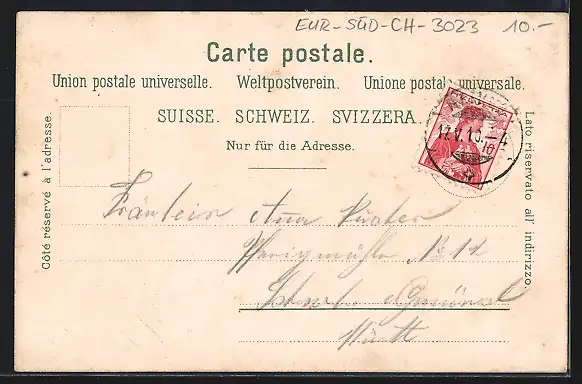 EUR-SÜD-CH-3023 10.-
Carte postale.
Union postale universelle. Weltpostverein. Unione postale universale.
SUISSE. SCHWEIZ. SVIZZERA.
Nur für die Adresse.
Côté réservé à l'adresse.
Lato riservato all' indirizzo.
17.V.10.-4
10
Fräulein Anna
No 11
Gmünd